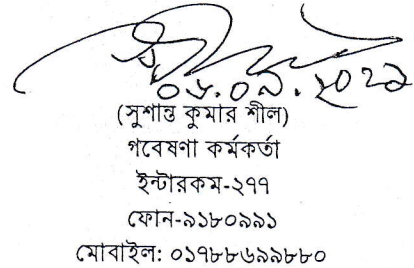 (সুশান্ত কুমার শীল)
গবেষণা কর্মকর্তা
ইন্টারকম-২৭৭
ফোন-৯১৮০৯৯১
মোবাইল: ০১৭৮৮৬৯৯৮৮০